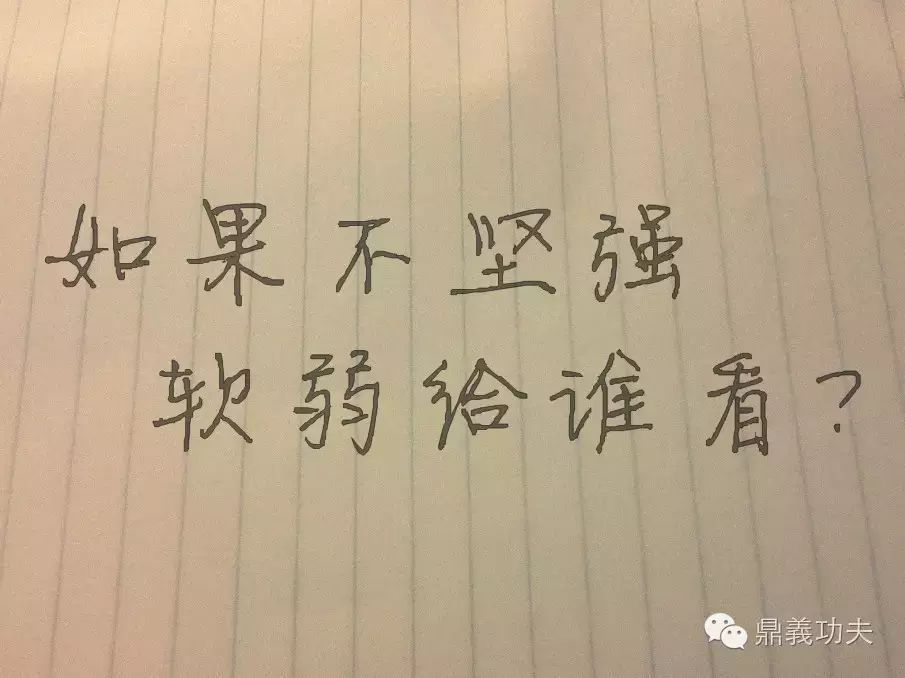 如果不坚强
软弱给谁看?
鼎義功夫